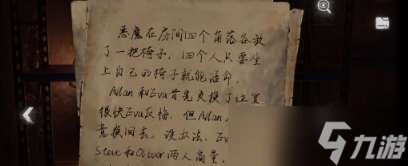 恶魔在房间四个角落各放
了一把椅子，四个人只要坐
上自己的椅子就能活命，
Allan和Eva首先交换了位置
很快Eva反悔，但Allan
直换回去，没办法，Ev
Steve和Oliver两人商量，
九游